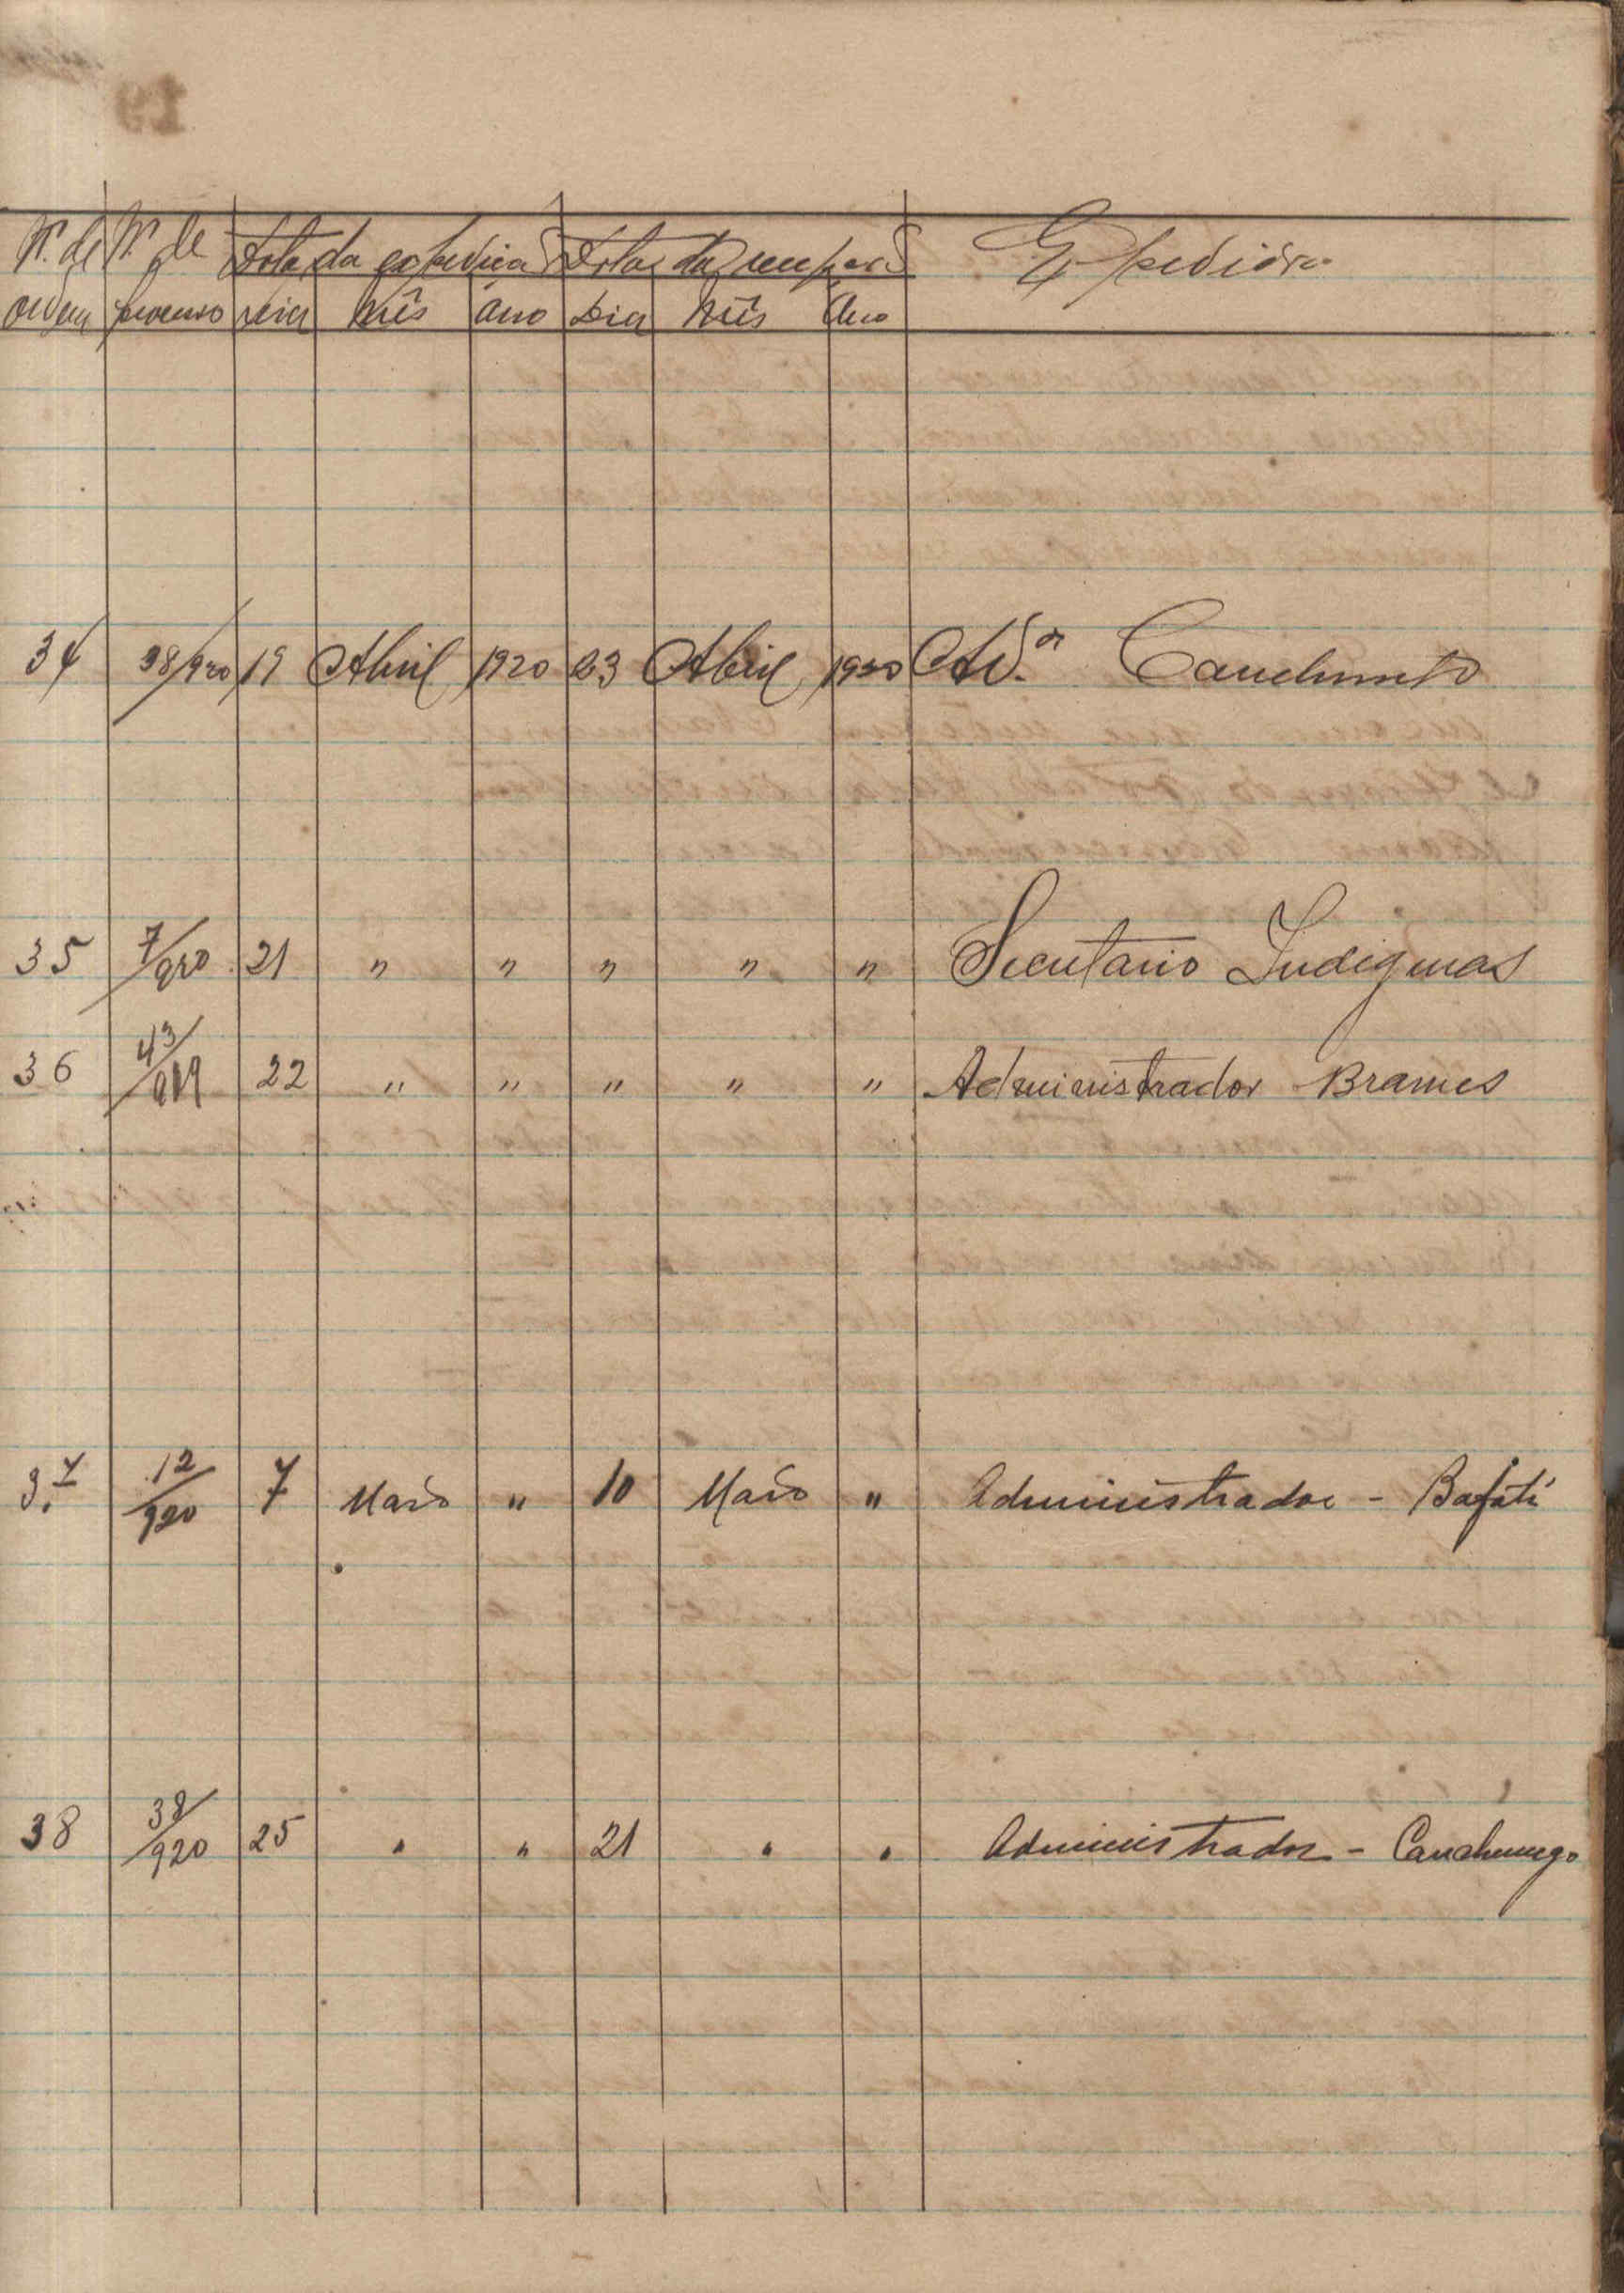 Nº de Nº de Data da expedição Data da recepção Expedidor
ordem processo Dia Mês Ano Dia Mês Ano
34 38/920 19 Abril 1920 23 Abril 1920 Ad.or
35 7/920 21 " " " " " Secretario Indigenas
36 43/919 22 " " " " " Administrador Brames
37 12/920 7 Maio " 10 Maio " Administrador - Bafatá
38 38/920 25 " " 21 " " Administrador - Canchungo